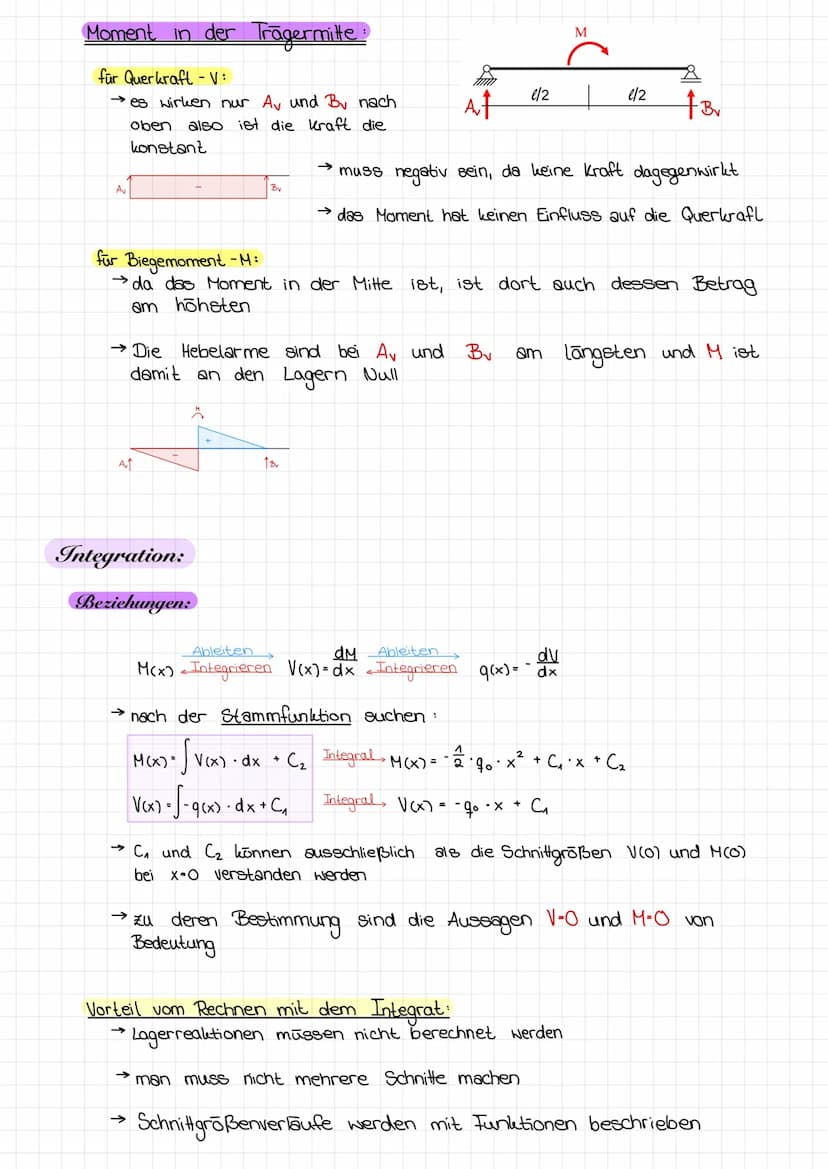 Moment in der Trägermitte:
M
für Querkraft - V:
→ es wirken nur Av und Bv nach
oben also ist die Kraft die
konstant
l/2 l/2
Av Bv
Av - Bv
→ muss negativ sein, da keine Kraft dagegenwirkt
→ das Moment hat keinen Einfluss auf die Querkraft
für Biegemoment - M:
→ da das Moment in der Mitte ist, ist dort auch dessen Betrag
am höhsten
→ Die Hebelarme sind bei Av und Bv am längsten und M ist
damit an den Lagern Null
M
+
-
Av Bv
Integration:
Beziehungen:
Ableiten Ableiten
M(x) Integrieren V(x) = dM/dx Integrieren q(x) = - dV/dx
→ nach der Stammfunktion suchen:
M(x) = ∫ V(x) · dx + C₂ Integral → M(x) = - 1/2 · q₀ · x² + C₁ · x + C₂
V(x) = ∫ -q(x) · dx + C₁ Integral → V(x) = -q₀ · x + C₁
→ C₁ und C₂ können ausschließlich als die Schnittgrößen V(0) und M(0)
bei x=0 verstanden werden
→ zu deren Bestimmung sind die Aussagen V=0 und M=0 von
Bedeutung
Vorteil vom Rechnen mit dem Integrat:
→ Lagerreaktionen müssen nicht berechnet werden
→ man muss nicht mehrere Schnitte machen
→ Schnittgrößenverläufe werden mit Funktionen beschrieben